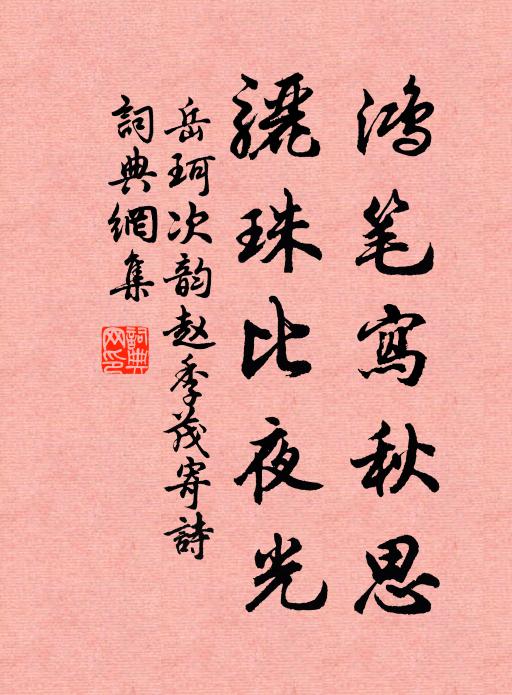 鸿笔寫秋思
驪珠比夜光
岳珂次韵赵季茂寄詩
詞典網集
詞典
网印